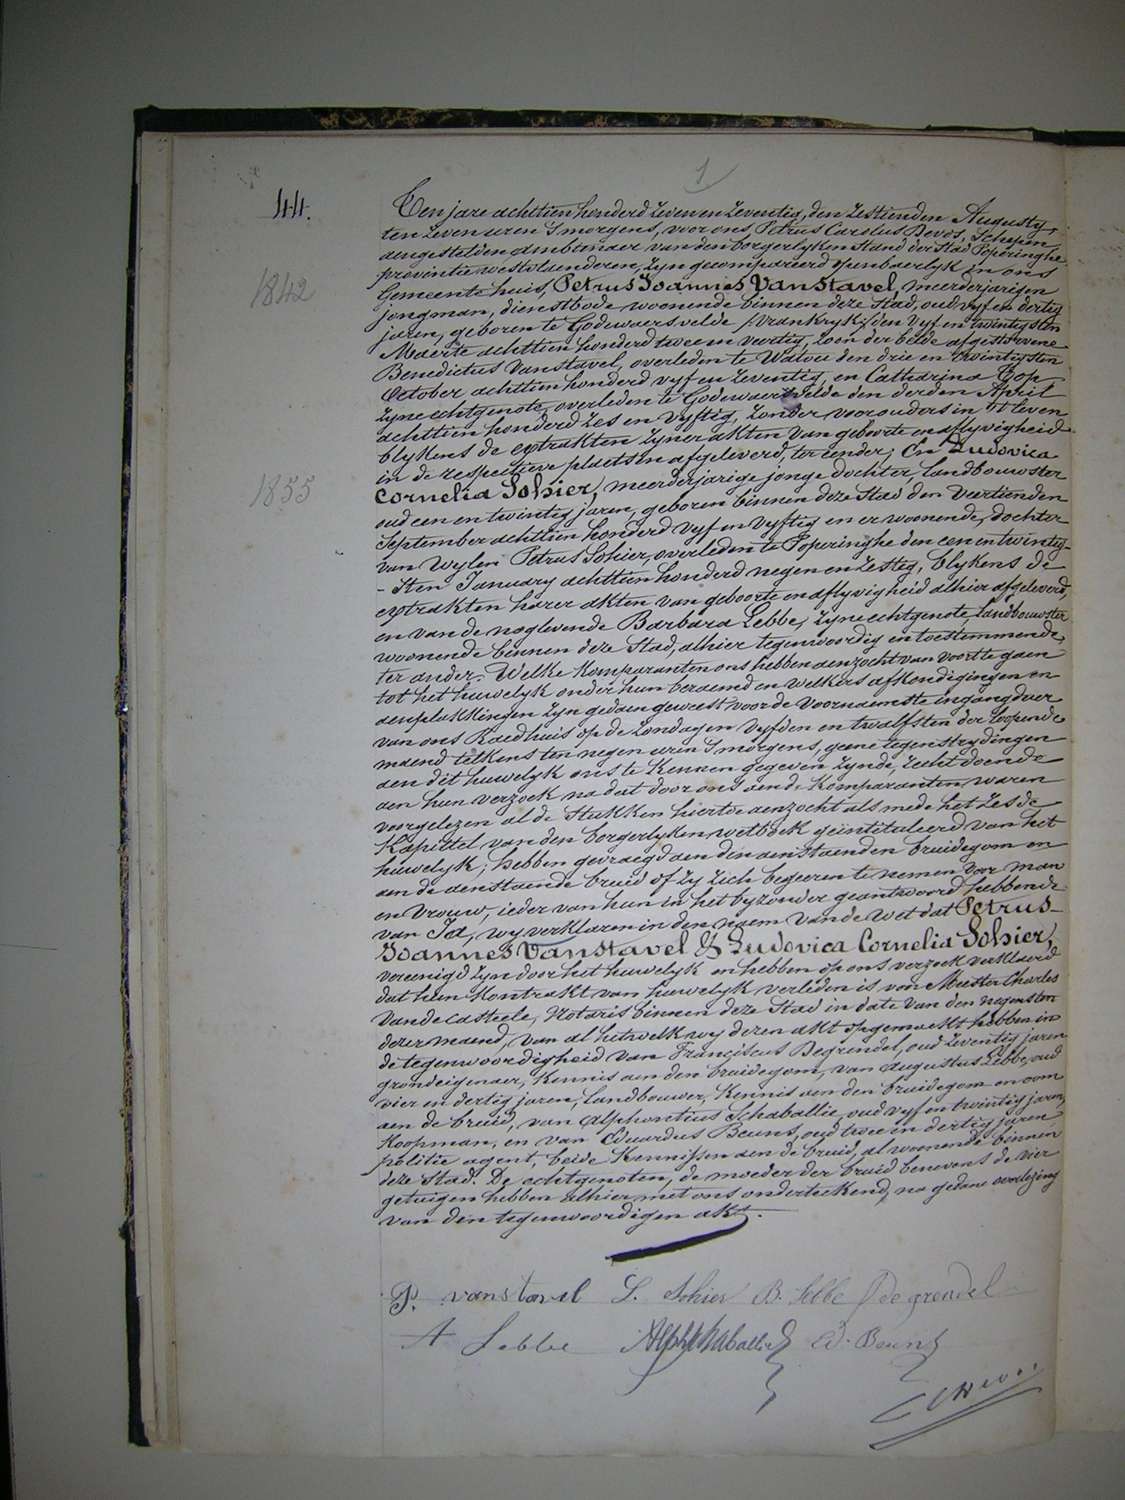 1
44.
Ten jare achttien honderd zeven en zeventig, den zestienden Augusty,
ten zeven uren 's morgens, voor ons, Petrus Carolus Devos, Schepen
aengestelden ambtenaer van den borgerlyken stand der stad Poperinghe
provintie westvlaenderen, zyn gecompareerd openbaerlyk in ons
1842
Gemeente huis, Petrus Joannes Vanstavel, meerderjarigen
jongman, dienstbode woonende binnen deze stad, oud vyf en dertig
jaren, geboren te Godewaersvelde (Vrankryk) den vyf en twintigsten
Maerte achttien honderd twee en veertig, zoon der beide afgestorvene
Benedictus Vanstavel, overleden te Watou den drie en twintigsten
October achttien honderd vyf en zeventig, en Catharina Top
zyne echtgenote, overleden te Godewaersvelde den derden April
achttien honderd zes en vyftig, zonder voorouders in 't leven
blykens de extrakten zyner akten van geboorte en aflyvigheid
in de respectieve plaetsen afgeleverd, ter eender; En Ludovica
1855
Cornelia Sohier, meerderjarige jonge dochter, landbouwster
oud een en twintig jaren, geboren binnen deze stad den veertienden
September achttien honderd vyf en vyftig en er woonende, dochter
van wylen Petrus Sohier, overleden te Poperinghe den een en twintig-
-sten January achttien honderd negen en zestig, blykens de
extrakten harer akten van geboorte en aflyvigheid alhier afgeleverd,
en van de noglevende Barbara Lebbe, zyne echtgenote, landbouwster
woonende binnen deze stad, alhier tegenwoordig en toestemmende,
ter ander. Welke komparanten ons hebben aenzocht van voort te gaen
tot het huwelyk onder hun beraemd en welkers afkondigingen en
aenplakkingen zyn gedaen geweest voor de voornaemste ingangdeur
van ons Raedhuis op de zondagen vyfden en twalfsten der loopende
maend telkens ten negen uren 's morgens, geene tegenstrydingen
aen dit huwelyk ons te kennen gegeven zynde, recht doende
aen hun verzoek na dat door ons aende komparanten waren
voorgelezen al de stukken hiertoe aenzocht als mede het zesde
Kapittel van den borgerlyken wetboek geïntituleerd van het
huwelyk; hebben gevraegd aen den aenstaenden bruidegom en
aen de aenstaende bruid of zy zich begeeren te nemen voor man
en vrouw, ieder van hun in het byzonder geantwoord hebbende
van Ja, wy verklaren in den naem van de wet dat Petrus
Joannes Vanstavel & Ludovica Cornelia Sohier,
vereenigd zyn door het huwelyk en hebben op ons verzoek verklaerd
dat hun kontrakt van huwelyk verleden is voor Meester Charles
Vandecasteele, Notaris binnen deze stad in date van den negensten
dezer maend, van al hetwelk wy dezen akt opgemaekt hebben in
de tegenwoordigheid van Franciscus Degrendel, oud zeventig jaren
grondeigenaer, kennis aen den bruidegom, van Augustus Lebbe, oud
vier en dertig jaren, landbouwer, kennis aen den bruidegom en oom
aen de bruid, van Alphontius Schaballie, oud vyf en twintig jaren
Koopman, en van Eduardus Beuns, oud twee en dertig jaren
politie agent, beide kennissen aen de bruid, al woonende binnen
deze stad. De echtgenoten, de moeder der bruid benevens de vier
getuigen hebben alhier met ons onderteekend, na gedane voorlezing
van den tegenwoordigen akt.
P. vanstavel L. Sohier B. Lebbe F degrendel
A Lebbe Alph Schaballie Ed. Beuns
C Devos